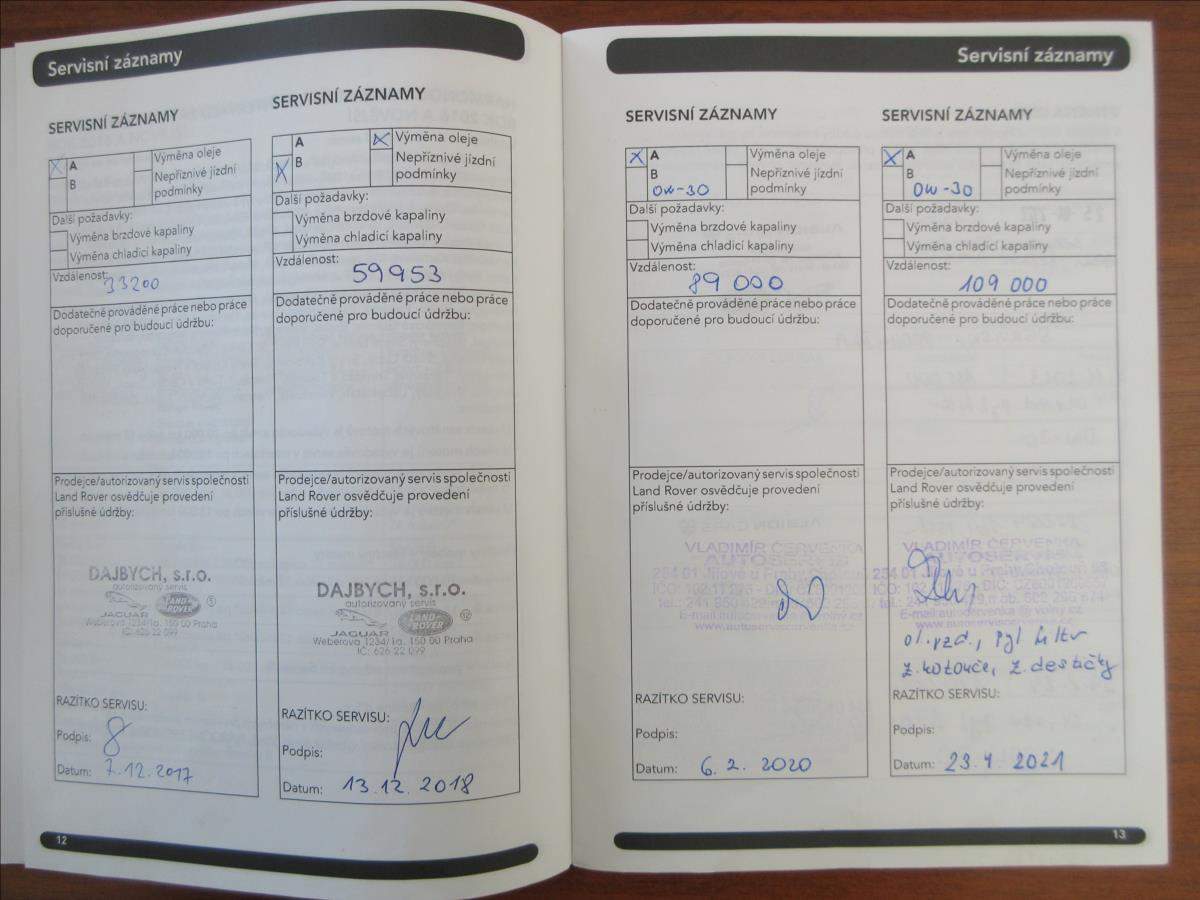 Servisní záznamy
SERVISNÍ ZÁZNAMY
X A
B
Výměna oleje
Nepříznivé jízdní
podmínky
Další požadavky:
Výměna brzdové kapaliny
Výměna chladicí kapaliny
Vzdálenost:
33200
Dodatečně prováděné práce nebo práce
doporučené pro budoucí údržbu:
Prodejce/autorizovaný servis společnosti
Land Rover osvědčuje provedení
příslušné údržby:
DAJBYCH, s.r.o.
autorizovaný servis
JAGUAR LAND ROVER
Weberova 1234/1a, 150 00 Praha
IČ: 626 22 099
RAZÍTKO SERVISU:
Podpis:
Datum: 7.12.2017
SERVISNÍ ZÁZNAMY
A
X B
X Výměna oleje
Nepříznivé jízdní
podmínky
Další požadavky:
Výměna brzdové kapaliny
Výměna chladicí kapaliny
Vzdálenost:
59953
Dodatečně prováděné práce nebo práce
doporučené pro budoucí údržbu:
Prodejce/autorizovaný servis společnosti
Land Rover osvědčuje provedení
příslušné údržby:
DAJBYCH, s.r.o.
autorizovaný servis
JAGUAR LAND ROVER
Weberova 1234/1a, 150 00 Praha
IČ: 626 22 099
RAZÍTKO SERVISU:
Podpis:
Datum: 13.12.2018
12
Servisní záznamy
SERVISNÍ ZÁZNAMY
X A
B
0W-30
Výměna oleje
Nepříznivé jízdní
podmínky
Další požadavky:
Výměna brzdové kapaliny
Výměna chladicí kapaliny
Vzdálenost:
89 000
Dodatečně prováděné práce nebo práce
doporučené pro budoucí údržbu:
Prodejce/autorizovaný servis společnosti
Land Rover osvědčuje provedení
příslušné údržby:
VLADIMÍR ČERVENKA
AUTOSERVIS
254 01 Jílové u
RAZÍTKO SERVISU:
Podpis:
Datum: 6. 2. 2020
SERVISNÍ ZÁZNAMY
X A
B
0W-30
Výměna oleje
Nepříznivé jízdní
podmínky
Další požadavky:
Výměna brzdové kapaliny
Výměna chladicí kapaliny
Vzdálenost:
109 000
Dodatečně prováděné práce nebo práce
doporučené pro budoucí údržbu:
Prodejce/autorizovaný servis společnosti
Land Rover osvědčuje provedení
příslušné údržby:
VLADIMÍR ČERVENKA
AUTOSERVIS
254 01 Jílové u Prahy
ol. vzd., pyl filtr
z. kotouče, z. destičky
RAZÍTKO SERVISU:
Podpis:
Datum: 23.4 2021
13